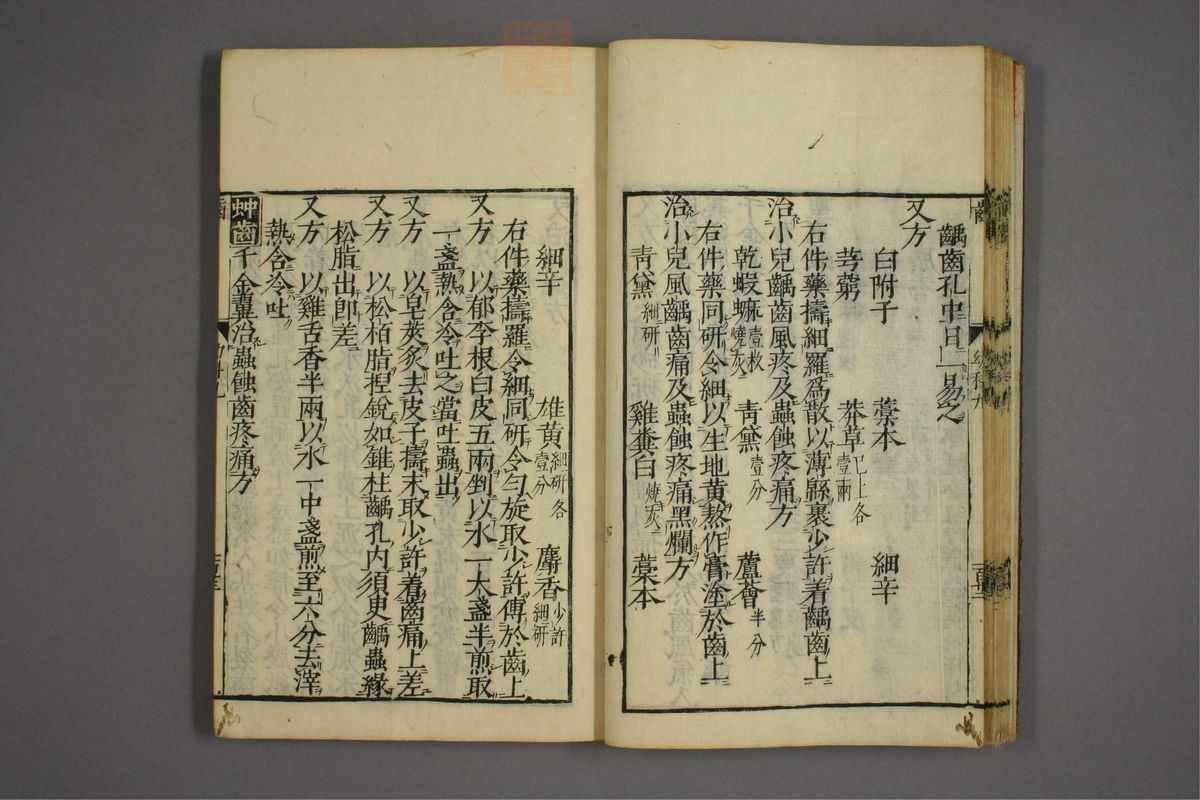 齲齒孔中日一易之
又方
白附子 藁本 細辛
芎藭 莽草 已上各壹兩
右件藥擣細羅爲散以薄緜裹少許着齲齒上
治小兒齲齒風疼及蟲蝕疼痛方
乾蝦蟆 壹枚燒灰 青黛 壹分 蘆薈 半分
右件藥同研令細以生地黄熬作膏塗於齒上
治小兒風齲齒痛及蟲蝕疼痛黑爛方
青黛 細研 雞糞白 燒灰 藁本
細辛 雄黄 細研各壹分 麝香 少許細研
右件藥擣羅令細同研令勻旋取少許傅於齒上
又方 以郁李根白皮五兩剉以水一大盞半煎取
一盞熱含冷吐之當吐蟲出
又方 以皂莢炙去皮子擣末取少許着齒痛上差
又方 以松栢脂揑銳如錐柱齲孔内須臾齲蟲緣
松脂出即差
又方 以雞舌香半兩以水一中盞煎至六分去滓
熱含冷吐
蚛齒 千金翼治蟲蝕齒疼痛方